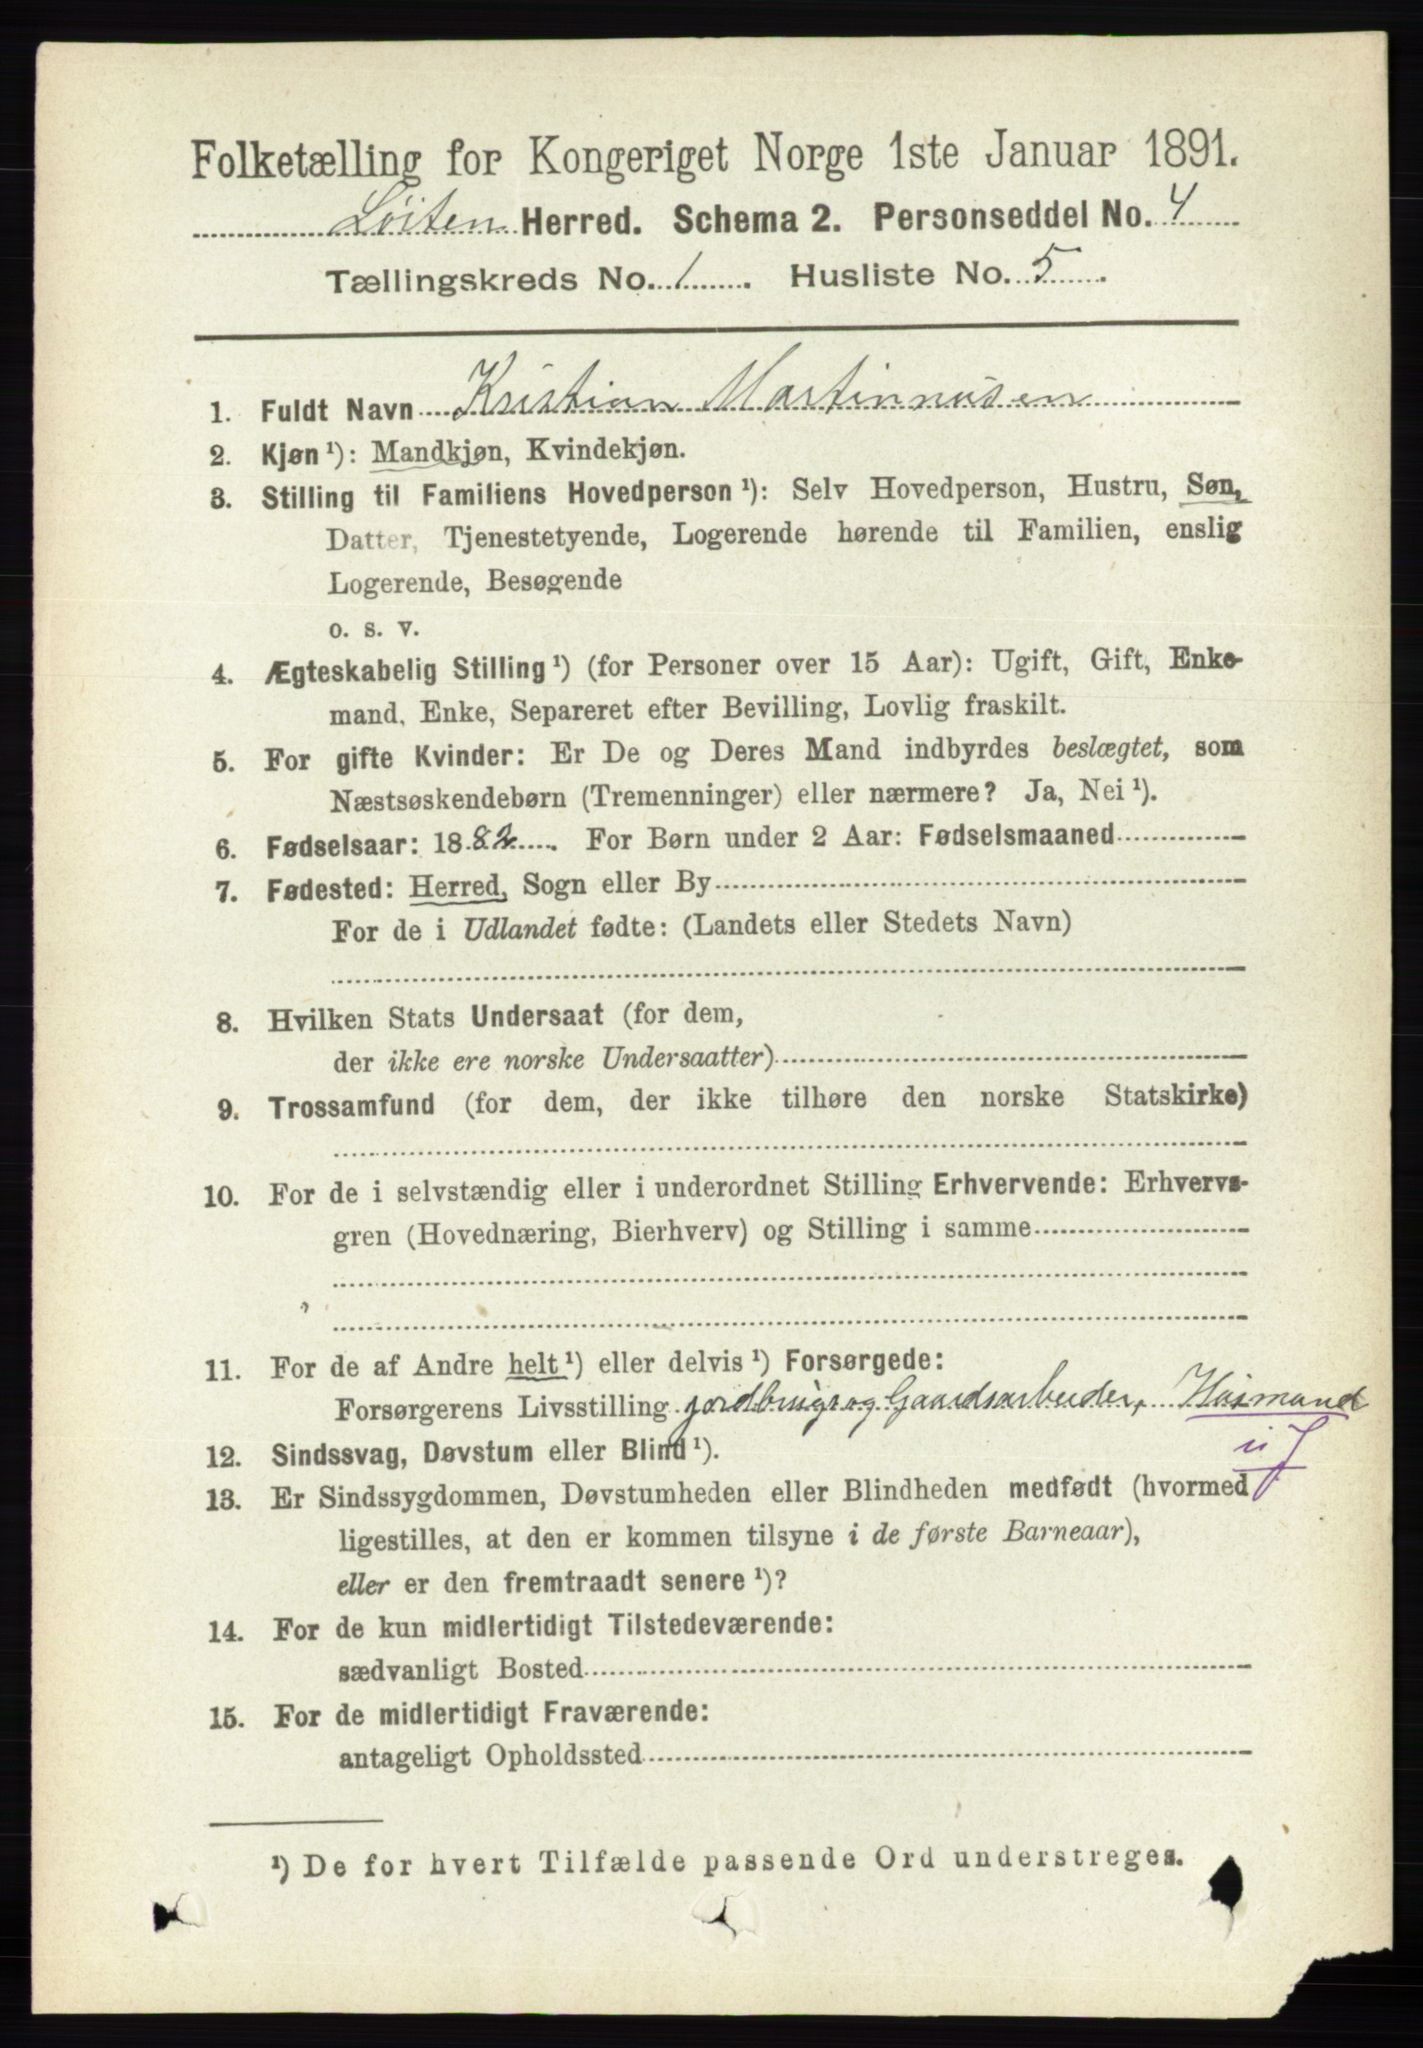 Folketælling for Kongeriget Norge 1ste Januar 1891.
Löiten Herred. Schema 2. Personseddel No. 4
Tællingskreds No. 1. Husliste No. 5.
1. Fuldt Navn Kristian Martinnusen
2. Kjøn ¹): Mandkjøn, Kvindekjøn.
3. Stilling til Familiens Hovedperson ¹): Selv Hovedperson, Hustru, Søn,
Datter, Tjenestetyende, Logerende hørende til Familien, enslig
Logerende, Besøgende
o. s. v.
4. Ægteskabelig Stilling ¹) (for Personer over 15 Aar): Ugift, Gift, Enke-
mand, Enke, Separeret efter Bevilling, Lovlig fraskilt.
5. For gifte Kvinder: Er De og Deres Mand indbyrdes beslægtet, som
Næstsøskendebørn (Tremenninger) eller nærmere? Ja, Nei ¹).
6. Fødselsaar: 1882. For Børn under 2 Aar: Fødselsmaaned
7. Fødested: Herred, Sogn eller By
For de i Udlandet fødte: (Landets eller Stedets Navn)
8. Hvilken Stats Undersaat (for dem,
der ikke ere norske Undersaatter)
9. Trossamfund (for dem, der ikke tilhøre den norske Statskirke)
10. For de i selvstændig eller i underordnet Stilling Erhvervende: Erhvervs-
gren (Hovednæring, Bierhverv) og Stilling i samme
11. For de af Andre helt ¹) eller delvis ¹) Forsørgede:
Forsørgerens Livsstilling jordbrugs og Gaardsarbeider, Husmand
12. Sindssvag, Døvstum eller Blind ¹). u J
13. Er Sindssygdommen, Døvstumheden eller Blindheden medfødt (hvormed
ligestilles, at den er kommen tilsyne i de første Barneaar),
eller er den fremtraadt senere ¹)?
14. For de kun midlertidigt Tilstedeværende:
sædvanligt Bosted
15. For de midlertidigt Fraværende:
antageligt Opholdssted
¹) De for hvert Tilfælde passende Ord understreges.